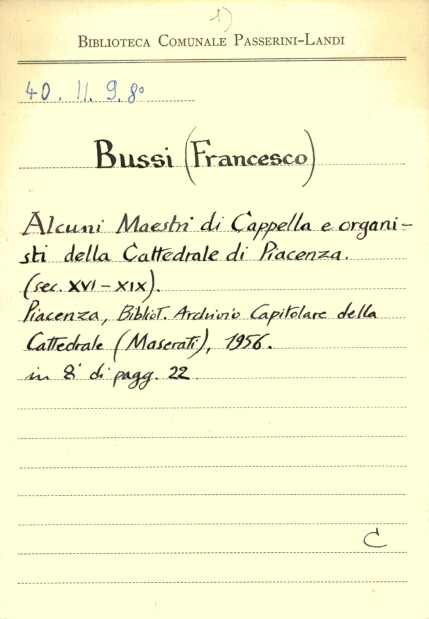 1)
BIBLIOTECA COMUNALE PASSERINI-LANDI
40. II. 9. 8º
Bussi (Francesco)
Alcuni Maestri di Cappella e organi-
sti della Cattedrale di Piacenza.
(sec. XVI - XIX).
Piacenza, Bibliot. Archivio Capitolare della
Cattedrale (Maserati), 1956.
in 8º di pagg. 22
C